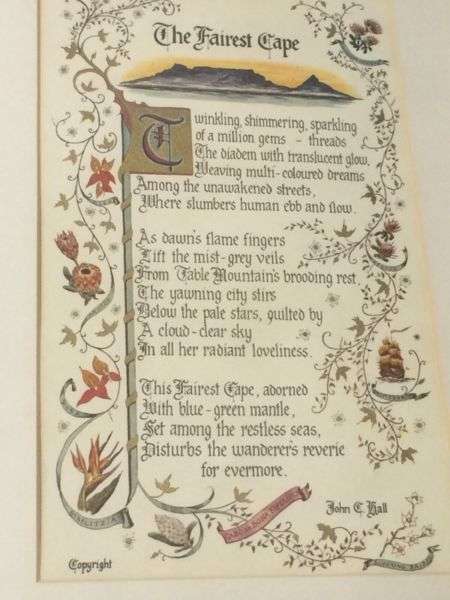 The Fairest Cape
Twinkling, shimmering, sparkling
of a million gems - threads
The diadem with translucent glow,
Weaving multi-coloured dreams
Among the unawakened streets,
Where slumbers human ebb and flow.
As dawn's flame fingers
Lift the mist-grey veils
From Table Mountain's brooding rest,
The yawning city stirs
Below the pale stars, quilted by
A cloud-clear sky
In all her radiant loveliness.
This Fairest Cape, adorned
With blue-green mantle,
Set among the restless seas,
Disturbs the wanderer's reverie
for evermore.
John C. Hall
Copyright